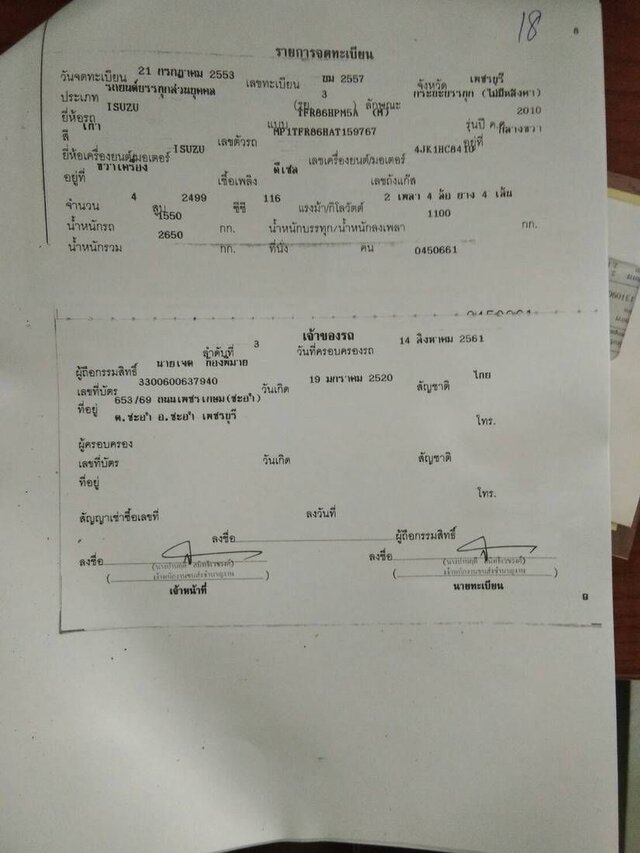 18
8
รายการจดทะเบียน
วันจดทะเบียน 21 กรกฎาคม 2553 เลขทะเบียน ขม 2557 จังหวัด เพชรบุรี
ประเภท รถยนต์บรรทุกส่วนบุคคล (รย 3 ) ลักษณะ กระบะบรรทุก (ไม่มีหลังคา)
ยี่ห้อรถ ISUZU แบบ TFR86HPM5A (M) รุ่นปี ค.ศ. 2010
สี เทา เลขตัวรถ MP1TFR86HAT159767 อยู่ที่ กลางขวา
ยี่ห้อเครื่องยนต์/มอเตอร์ ISUZU เลขเครื่องยนต์/มอเตอร์ 4JK1HC8410
อยู่ที่ ขวาเครื่อง เชื้อเพลิง ดีเซล เลขถังแก๊ส
จำนวน 4 สูบ 2499 ซีซี 116 แรงม้า/กิโลวัตต์ 2 เพลา 4 ล้อ ยาง 4 เส้น
น้ำหนักรถ 1550 กก. น้ำหนักบรรทุก/น้ำหนักลงเพลา 1100 กก.
น้ำหนักรวม 2650 กก. ที่นั่ง คน 0450661
เจ้าของรถ
ลำดับที่ 3 วันที่ครอบครองรถ 14 สิงหาคม 2561
ผู้ถือกรรมสิทธิ์ นายเจต ก้องพิมาย
เลขที่บัตร 3300600637940 วันเกิด 19 มกราคม 2520 สัญชาติ ไทย
ที่อยู่ 653/69 ถนนเพชรเกษม(ชะอำ)
ต.ชะอำ อ.ชะอำ เพชรบุรี โทร.
ผู้ครอบครอง
เลขที่บัตร วันเกิด สัญชาติ
ที่อยู่
โทร.
สัญญาเช่าซื้อเลขที่ ลงวันที่
ลงชื่อ ผู้ถือกรรมสิทธิ์
ลงชื่อ ลงชื่อ
เจ้าพนักงานขนส่งชำนาญงาน เจ้าพนักงานขนส่งชำนาญงาน
เจ้าหน้าที่ นายทะเบียน